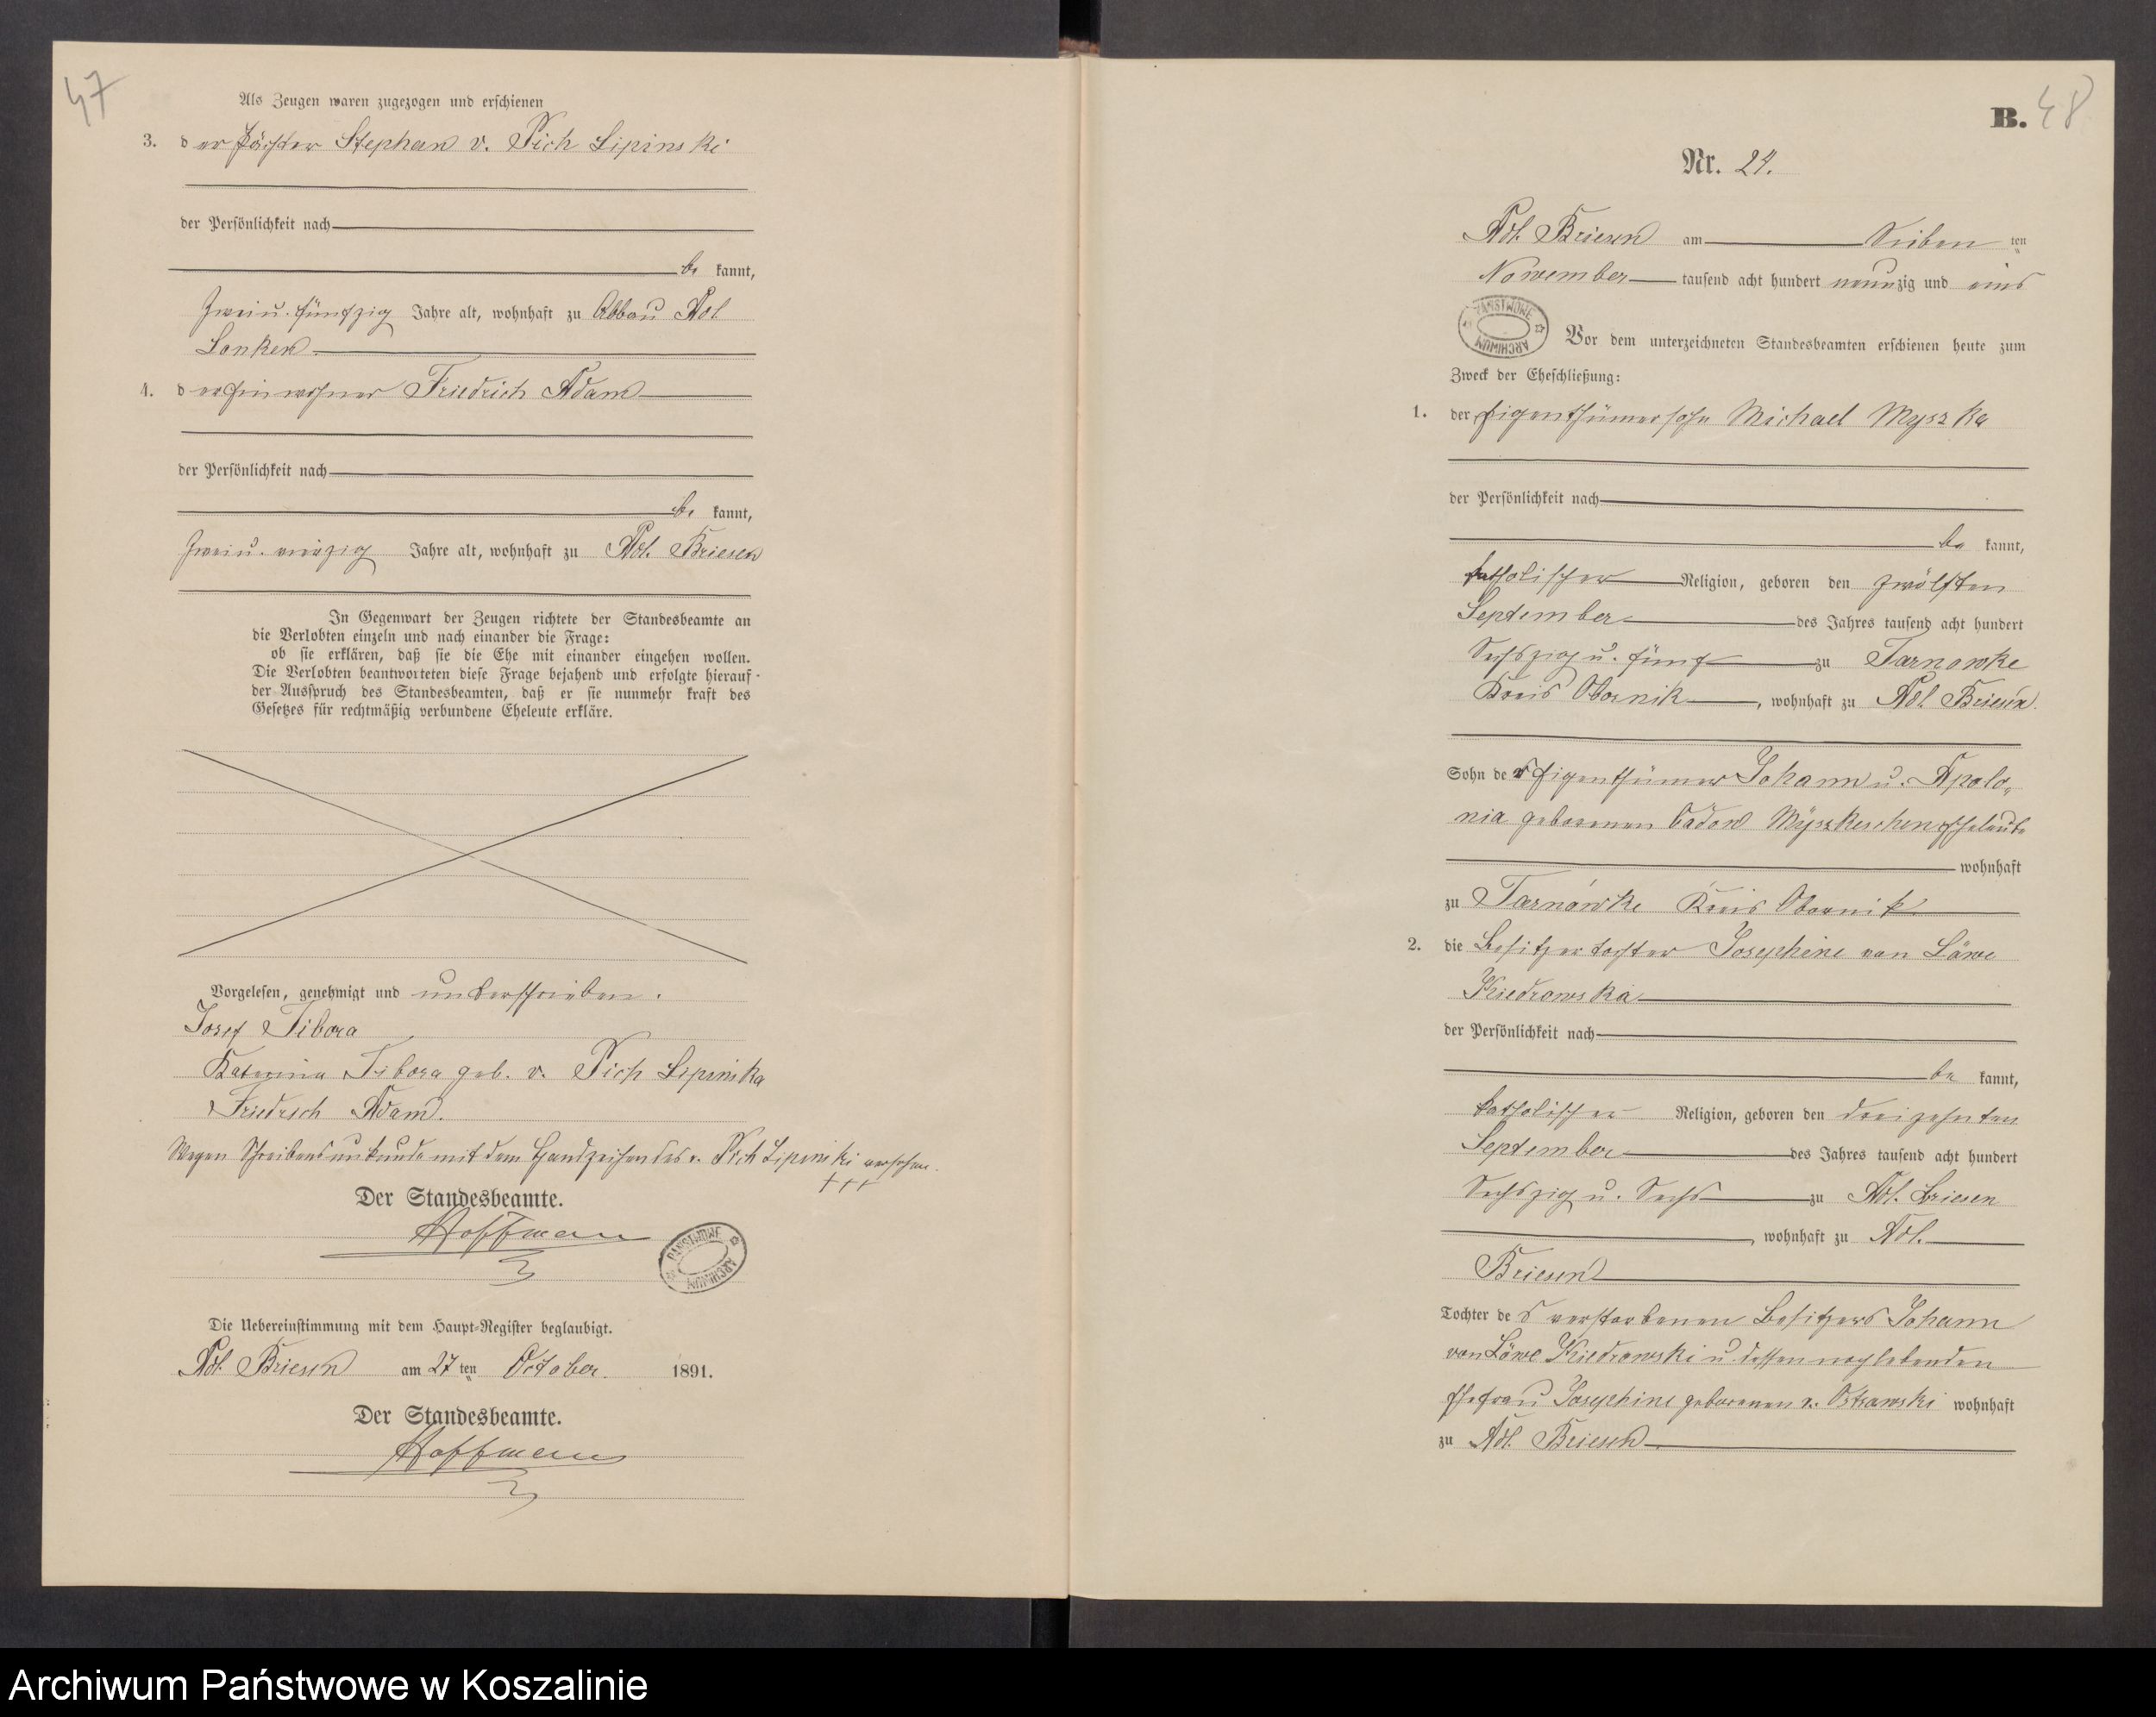 47
Als Zeugen waren zugezogen und erschienen
3. der Pächter Stephan v. Pich Lipinski
der Persönlichkeit nach
be kannt,
zwei u. fünfzig Jahre alt, wohnhaft zu Abbau Adl
Lonken
4. der Einwohner Friedrich Adam
der Persönlichkeit nach
be kannt,
zwei u. vierzig Jahre alt, wohnhaft zu Adl. Briesen
In Gegenwart der Zeugen richtete der Standesbeamte an
die Verlobten einzeln und nach einander die Frage:
ob sie erklären, daß sie die Ehe mit einander eingehen wollen.
Die Verlobten beantworteten diese Frage bejahend und erfolgte hierauf
der Ausspruch des Standesbeamten, daß er sie nunmehr kraft des
Gesetzes für rechtmäßig verbundene Eheleute erkläre.
Vorgelesen, genehmigt und unterschrieben.
Josef Tibora
Katerina Tibora geb. v. Pich Lipinska
Friedrich Adam.
Wegen Schreibensunkunde mit dem Handzeichen des v. Pich Lipinski versehen.
+++
Der Standesbeamte.
Hoffmann
PAŃSTWOWE ARCHIWUM
Die Uebereinstimmung mit dem Haupt-Register beglaubigt.
Adl. Briesen am 27 ten October. 1891.
Der Standesbeamte.
Hoffmann
B. 48
Nr. 24.
Adl. Briesen am Sieben ten
November tausend acht hundert neunzig und eins
PAŃSTWOWE ARCHIWUM
Vor dem unterzeichneten Standesbeamten erschienen heute zum
Zweck der Eheschließung:
1. der Eigenthümersohn Michael Myszka
der Persönlichkeit nach
be kannt,
katholischer Religion, geboren den zwölften
September des Jahres tausend acht hundert
Sechszig u. fünf zu Tarnowke
Kreis Obornik, wohnhaft zu Adl. Briesen.
Sohn der Eigenthümer Johann u. Apolo„
nia geborenen Myszkeschen Eheleute
wohnhaft
zu Tarnowke Kreis Obornik
2. die Besitzertochter Josephine von Löwe
Kiedrowska
der Persönlichkeit nach
be kannt,
katholischer Religion, geboren den dreizehnten
September des Jahres tausend acht hundert
Sechszig u. Sechs zu Adl. Briesen
, wohnhaft zu Adl.
Briesen
Tochter des verstorbenen Besitzers Johann
von Löwe Kiedrowski u. dessen noch lebenden
Ehefrau Josephine geborenen v. Ostrowski wohnhaft
zu Adl. Briesen
Archiwum Państwowe w Koszalinie